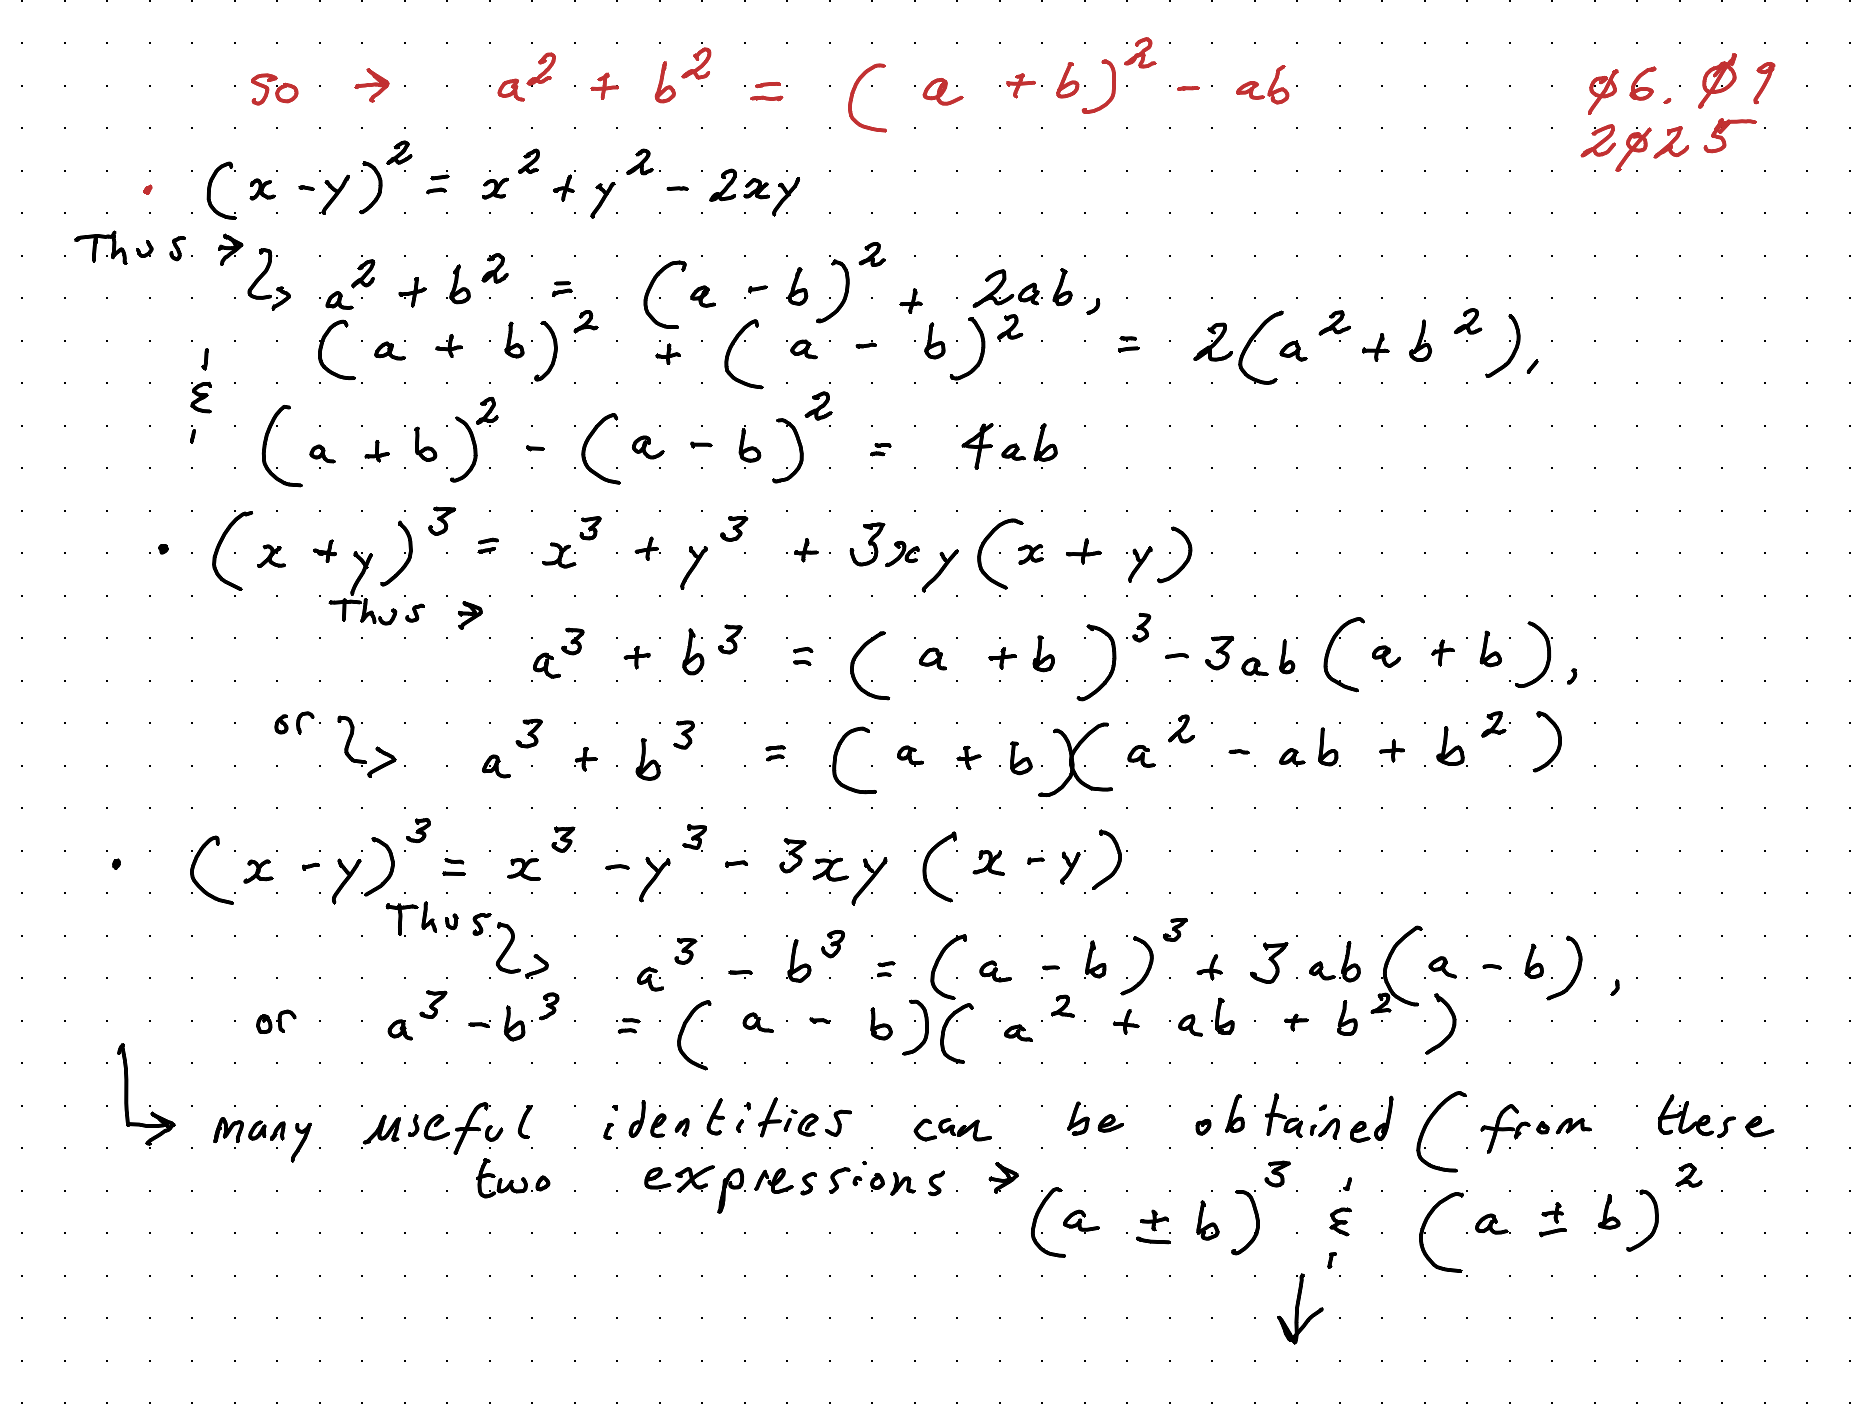 so → a² + b² = (a + b)² - ab
06.09
2025
• (x - y)² = x² + y² - 2xy
Thus → ↳ a² + b² = (a - b)² + 2ab,
(a + b)² + (a - b)² = 2(a² + b²),
& (a + b)² - (a - b)² = 4ab
• (x + y)³ = x³ + y³ + 3xy(x + y)
Thus →
a³ + b³ = (a + b)³ - 3ab(a + b),
or ↳ a³ + b³ = (a + b)(a² - ab + b²)
• (x - y)³ = x³ - y³ - 3xy(x - y)
Thus ↳ a³ - b³ = (a - b)³ + 3ab(a - b),
or a³ - b³ = (a - b)(a² + ab + b²)
↳ many useful identities can be obtained (from these
two expressions →
(a ± b)³ & (a ± b)²
↓